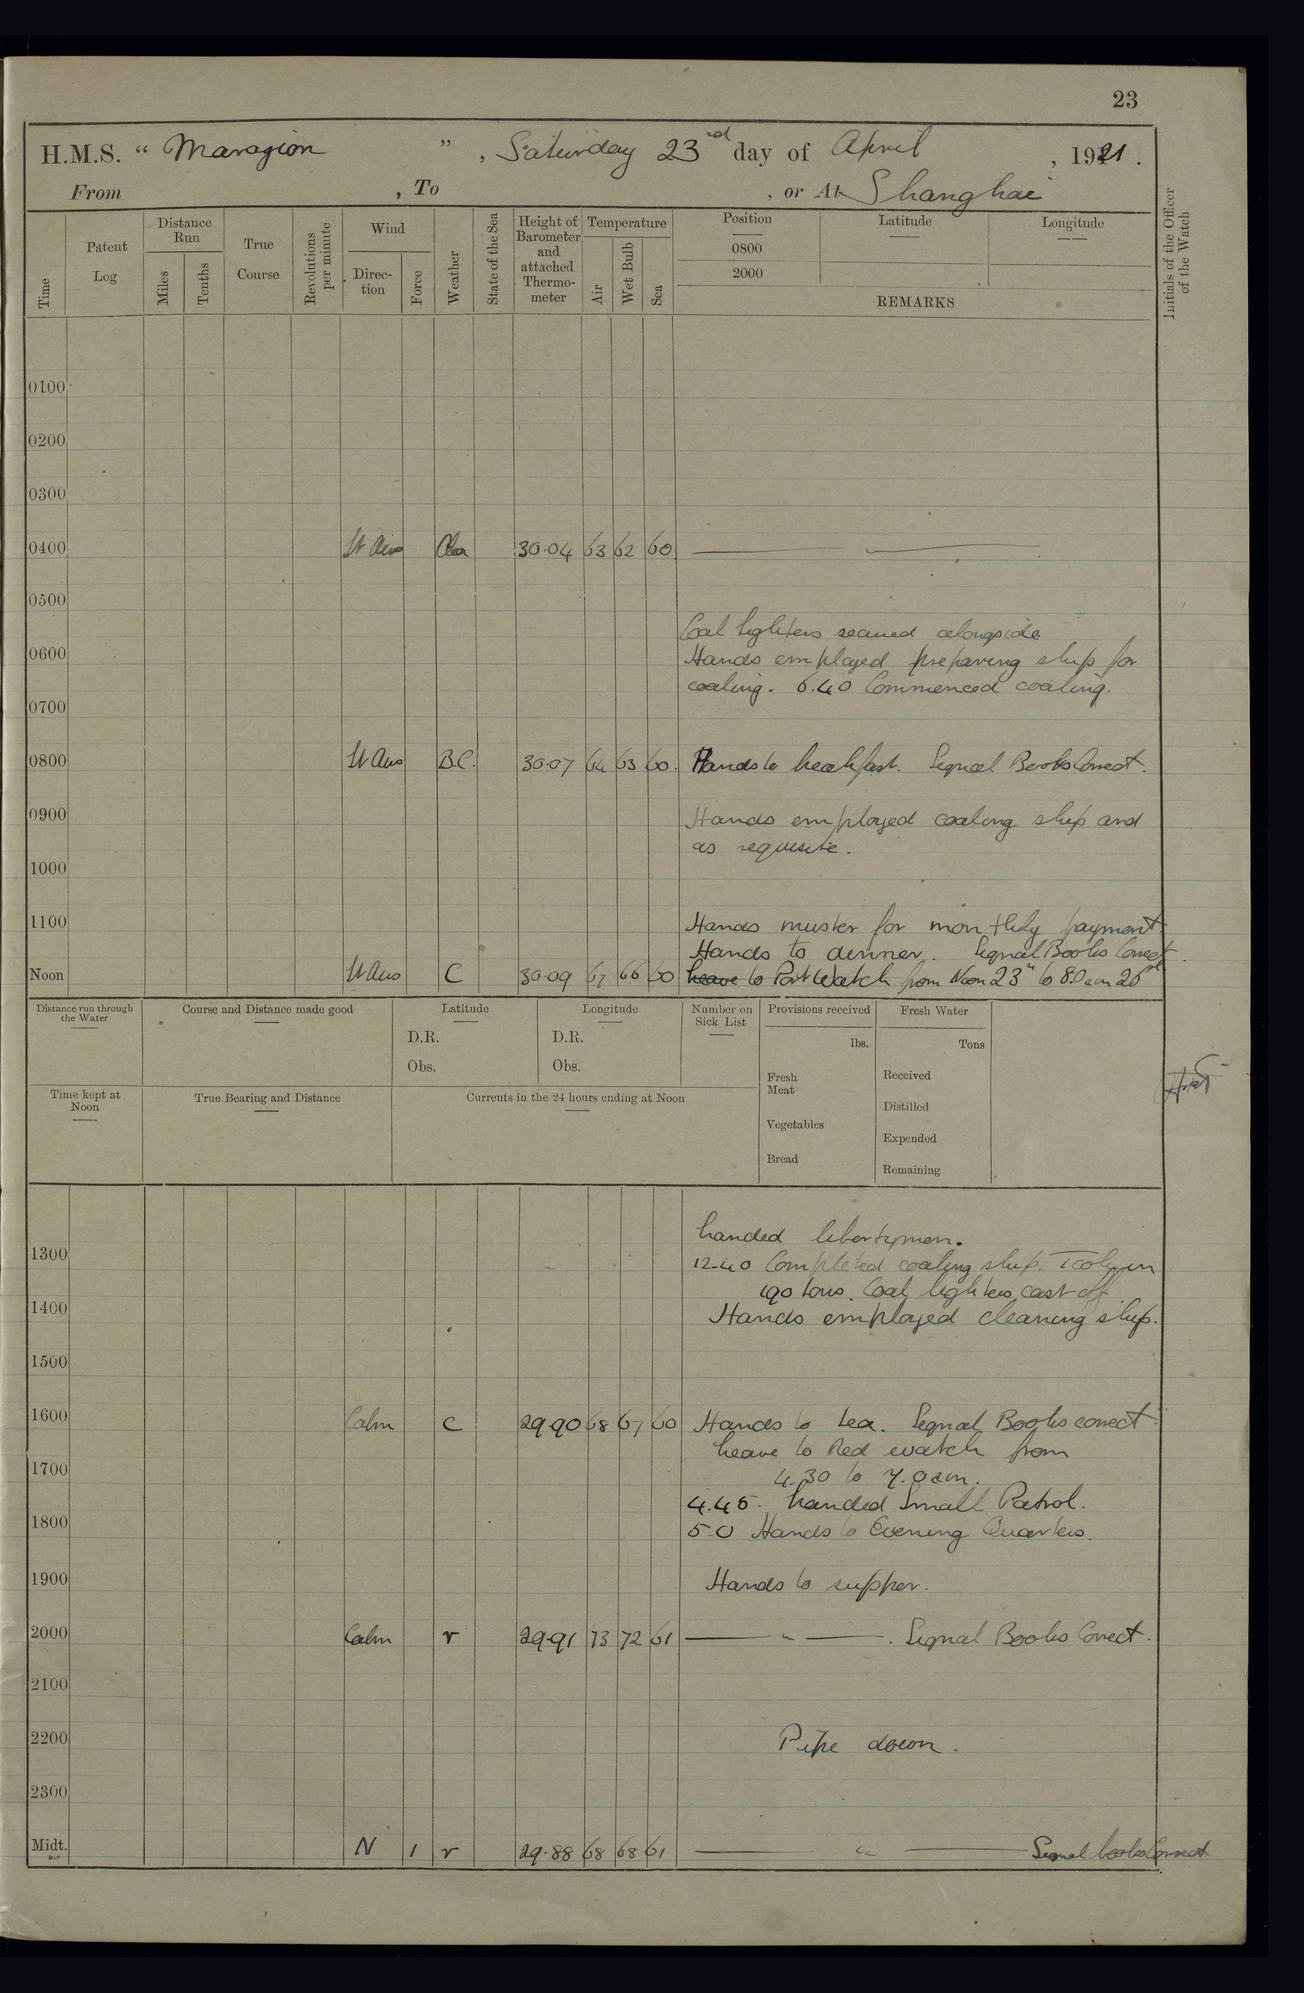 23
H.M.S. " Marazion ", Saturday 23rd day of April, 1921.
From , To , or At Shanghai
Time Patent Log Distance Run Miles Tenths True Course Revolutions per minute Wind Direction Force Weather State of the Sea Height of Barometer and attached Thermometer Temperature Air Wet Bulb Sea Position 0800 2000 Latitude Longitude REMARKS Initials of the Officer of the Watch
0100
0200
0300
0400 Lt Airs 30.04 63 62 60 — " —
0500
Coal lighters secured alongside
0600 Hands employed preparing ship for
coaling. 6.40 Commenced coaling.
0700
0800 Lt Airs B.C. 30.07 64 63 60. Hands to breakfast. Signal Books Correct.
0900 Hands employed coaling ship and
as requisite.
1000
1100 Hands muster for monthly payment.
Hands to dinner. Signal Books Correct.
Noon Lt Airs C 30.09 67 66 60 Leave to Port Watch from Noon 23rd to 8.0 am 25th
Distance run through the Water Course and Distance made good Latitude D.R. Obs. Longitude D.R. Obs. Number on Sick List Provisions received lbs. Fresh Meat Vegetables Bread Fresh Water Tons Received Distilled Expended Remaining
Time kept at Noon True Bearing and Distance Currents in the 24 hours ending at Noon
Landed libertymen.
1300 12.40 Completed coaling ship. Took in
190 tons. Coal lighters cast off.
1400 Hands employed cleaning ship.
1500
1600 Calm C 29.90 68 67 60 Hands to tea. Signal Books correct.
Leave to Red watch from
1700 4.30 to 7.0 am.
4.45. Landed Small Patrol.
1800 5.0 Hands to Evening Quarters.
1900 Hands to supper.
2000 Calm r 29.91 73 72 61 — " — . Signal Books Correct.
2100
2200 Pipe down.
2300
Midt. N 1 r 29.88 68 68 61 — " — Signal books Correct